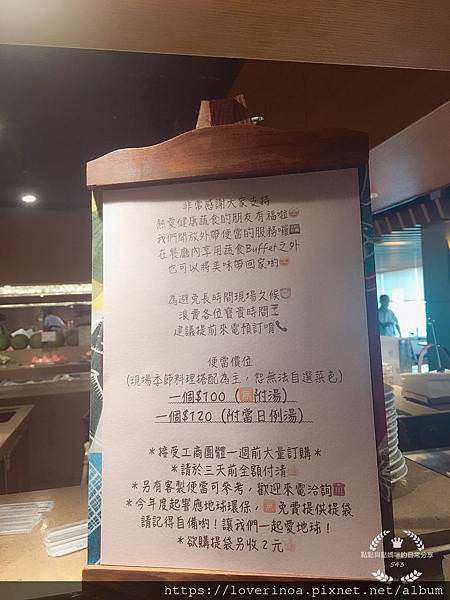 非常感謝大家支持
熱愛健康蔬食的朋友有福啦
我們開放外帶便當的服務囉
在餐廳內享用蔬食Buffet之外
也可以將美味帶回家喲
為避免長時間現場久候
浪費各位寶貴時間
建議提前來電預訂唷
便當價位
(現場季節料理搭配為主，恕無法自選菜色)
一個$100 (🈚附湯)
一個$120 (附當日例湯)
*接受工商團體一週前大量訂購*
*請於三天前全額付清
*另有客製便當可參考，歡迎來電洽詢
*今年度起響應地球環保，🈚免費提供提袋
請記得自備喲！讓我們一起愛地球！
*欲購提袋另收2元
點點與點媽咪的日常分享
543
https://loverinoa.pixnet.net/album